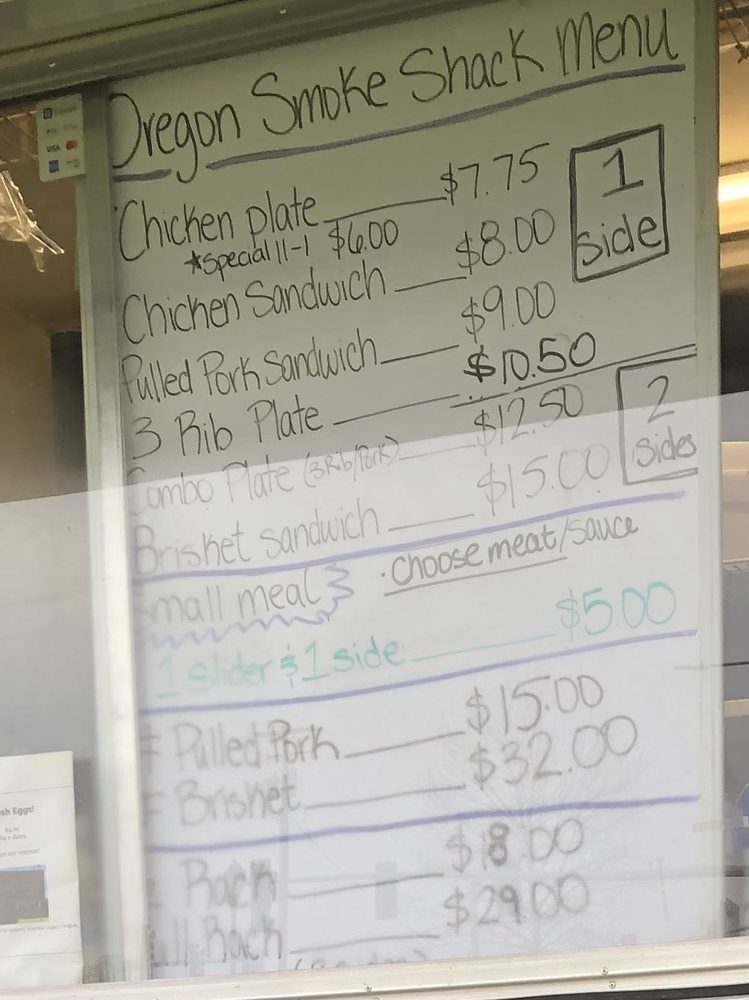 Oregon Smoke Shack Menu
VISA
Chicken plate $7.75
1
side
*Special 11-1 $6.00
Chicken Sandwich $8.00
Pulled Pork Sandwich $9.00
3 Rib Plate $10.50
2
sides
Combo Plate (3Rib/Pork) $12.50
Brisket sandwich $15.00
Small meal • Choose meat/sauce
1 slider & 1 side $5.00
# Pulled Pork $15.00
# Brisket $32.00
Rack $18.00
Full Rack $29.00
sh Eggs!